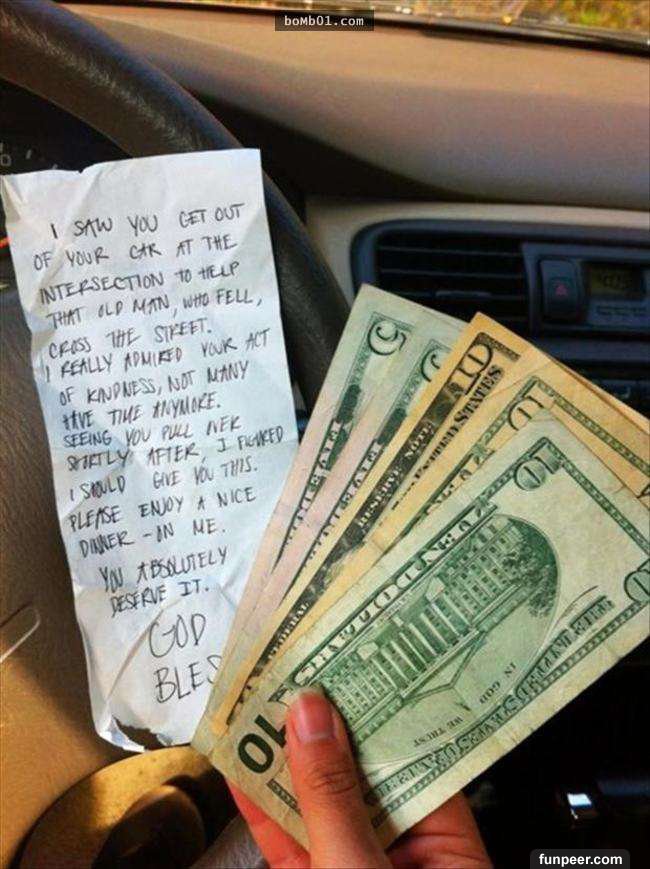 boMb01.com
I SAW YOU GET OUT
OF YOUR CAR AT THE
INTERSECTION TO HELP
THAT OLD MAN, WHO FELL,
CROSS THE STREET.
I REALLY ADMIRED YOUR ACT
OF KINDNESS, NOT MANY
HAVE TIME ANYMORE.
SEEING YOU PULL OVER
SHORTLY AFTER, I FIGURED
I SHOULD GIVE YOU THIS.
PLEASE ENJOY A NICE
DINNER - ON ME.
YOU ABSOLUTELY
DESERVE IT.
GOD
BLES
5
10
RESERVE NOTE
STATES
10
IN GOD WE TRUST
THE UNITED STATES OF AMERICA
10
funpeer.com